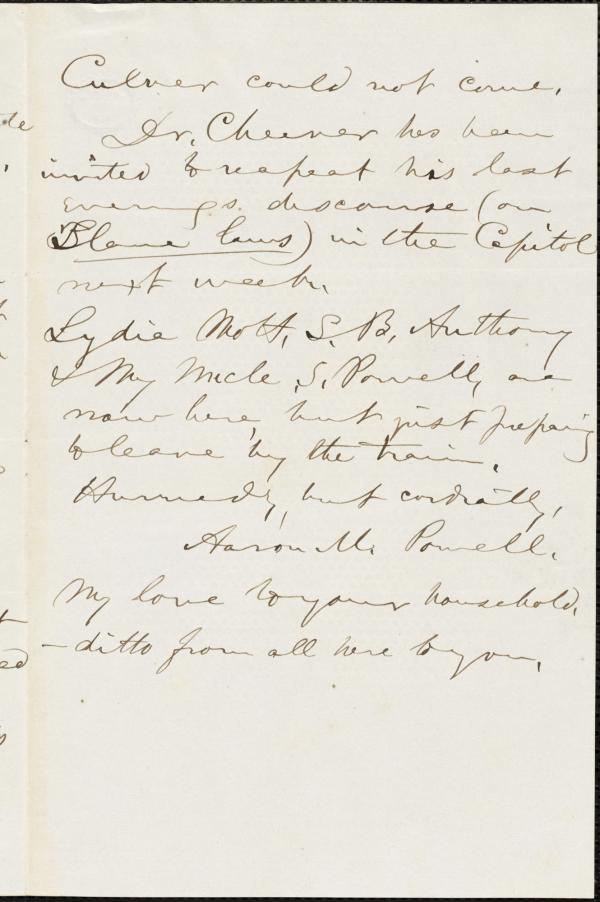 Culver could not come.
Dr. Cheever has been
invited to reapeat his last
evenings discourse (on
laws) in the Capitol
next week.
Lydia Mott, S. B. Anthony
& My Uncle, S. Powell, are
now here, but just preparing
to leave by the train.
Hurriedly, but cordially,
Aaron M. Powell.
My love to your household,
- ditto from all here to you.